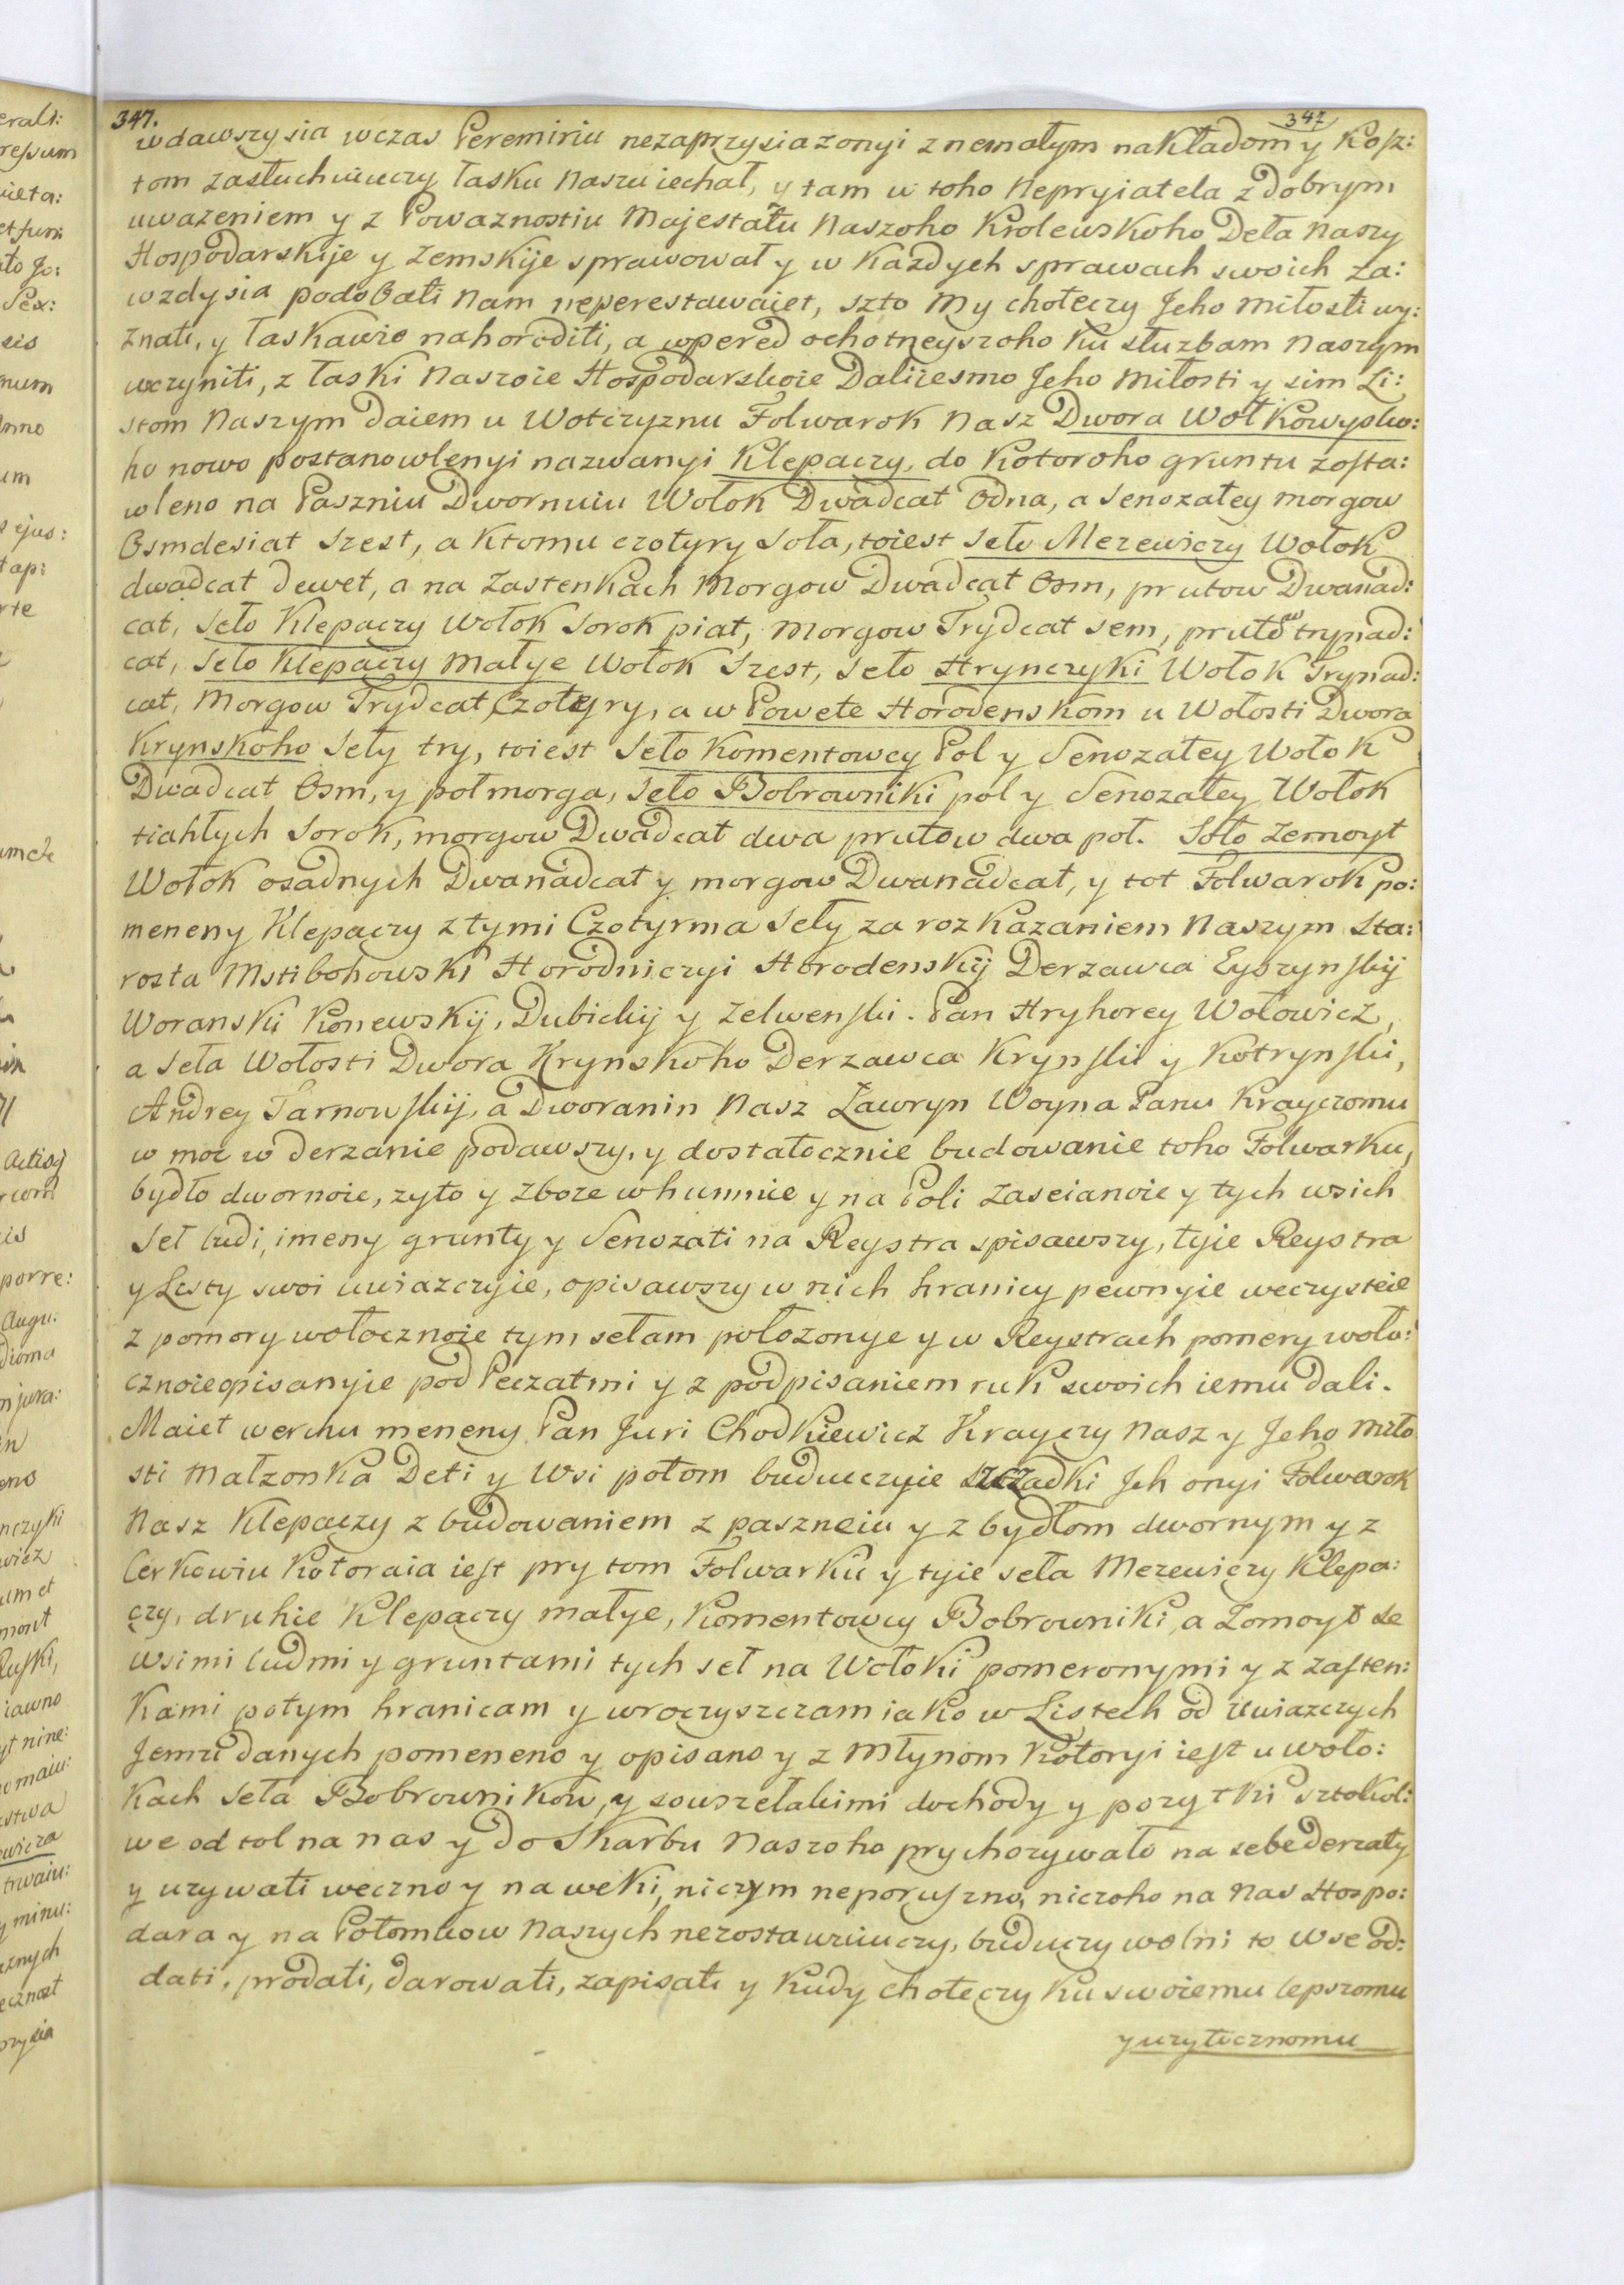 347.
347
wdawszysia wczas Peremiriu nezaprzysiazonyi z nemałym nakładom y Kosz:
tom zasłuchuiuczy łasku naszu iechał, y tam u toho Nepryiatela z dobrym
uwazeniem y z Powaznostiu Majestatu Naszoho Krolewskoho Deła naszy
Hospodarskije y Zemskije sprawował y w Kazdych sprawach swoich za:
wzdysia podobati Nam neperestawaiet, szto My choteczy Jeho miłosti wy:
znati, y łaskawie nahoroditi, a wpered ochotneyszoho Ku słuzbam Naszym
uczyniti, z łaski Naszoie Hospodarskoie Daliiesmo Jeho Miłosti y sim Li:
stom Naszym daiem u Wotczyznu Folwarok Nasz Dwora Wołkowysko:
ho nowo postanowlenyi nazwanyi Klepaczy, do Kotoroho gruntu zosta:
wleno na Paszniu Dwornuiu Wołok Dwadcat Odna, a Senozatey morgow
Osmdesiat Szest, a Ktomu czotyry Soła, toiest Seło Mezewiczy Wołok
dwadcat dewet, a na Zastenkach Morgow Dwadcat Osm, prutow Dwanad:
cat, Seło Klepaczy Wołok Sorok piat, Morgow Trydcat sem, prutow trynad:
cat, Seło Klepaczy Małye Wołok Szest, Seło Hrynczyki Wołok Trynad:
cat, Morgow Trydcat Czotyry, a w Powete Horodenskom u Wołosti Dwora
Krynskoho Seły try, toiest Seło Komentowcy Pol y Senozatey Wołok
Dwadcat Osm, y połmorga, Seło Bobrowniki pol y Senozatey Wołok
tiahłych Sorok, morgow Dwadcat dwa prutow dwa poł. Soło Zemoyt
Wołok osadnych Dwanadcat y morgow Dwanadcat, y tot Folwarok po:
meneny Klepaczy z tymi Czotyrma Seły za rozkazaniem Naszym Sta:
rosta Mstibohowski Horodniczyi Horodenskij Derzawca Eyszynskij
Woranski Konewskij, Dubickij y Zelwenski. Pan Hryhorey Wołowicz,
a Seła Wołosti Dwora Krynskoho Derzawca Krynski y Kotrynski,
Andrey Tarnowskij, a Dworanin Nasz Ławryn Woyna Panu Krayczomu
w moc w derzanie podawszy, y dostatocznie budowanie toho Folwarku,
bydło dwornoie, zyto y zboze w humnie y na Poli zaseianoie y tych wsich
Seł ludi, imeny grunty y Senozati na Reystra spisawszy, tyie Reystra
y Listy swoi uwiazczyie, opisawszy w nich hranicy pewnyie weczysteie
z pomery wołocznoie tym sełam położonye y w Reystrach pomery woło:
cznoie opisanyie pod Peczatmi y z podpisaniem ruk swoich iemu dali.
Maiet werchu meneny Pan Juri Chodkiewicz Krayczy Nasz y Jeho Miło
sti Małzonka Deti y Wsi potom buduczyie szczadki Jch onyi Folwarok
Nasz Klepaczy z budowaniem z paszneiu y z bydłom dwornym y z
Cerkowiu Kotoraia iest pry tom Folwarku y tyie seła Mezewiczy Klepa:
czy, druhie Klepaczy małye, Komentowcy Bobrowniki, a Zomoyt ze
wsimi ludmi y gruntami tych seł na Wołoki pomeronymi y z zasten:
kami potym hranicam y wroczyszczam iako w Listech od uwiazczych
Jemu danych pomeneno y opisano y z Młynom Kotoryi iest u woło:
kach Seła Bobrownikow, y sowszelakimi dochody y pozytki sztokol:
we od tol na nas y do Skarbu Naszoho prychozywało na sebe derzaty
y uzywati weczno y na weki, niczym neporuszno, niczoho na Nas Hospo:
dara y na Potomkow Naszych nezostawuiuczy, buduczy wolni to Wse od:
dati, prodati, darowati, zapisati y Kudy choteczy Ku swoiemu lepszomu
y uzytocznomu